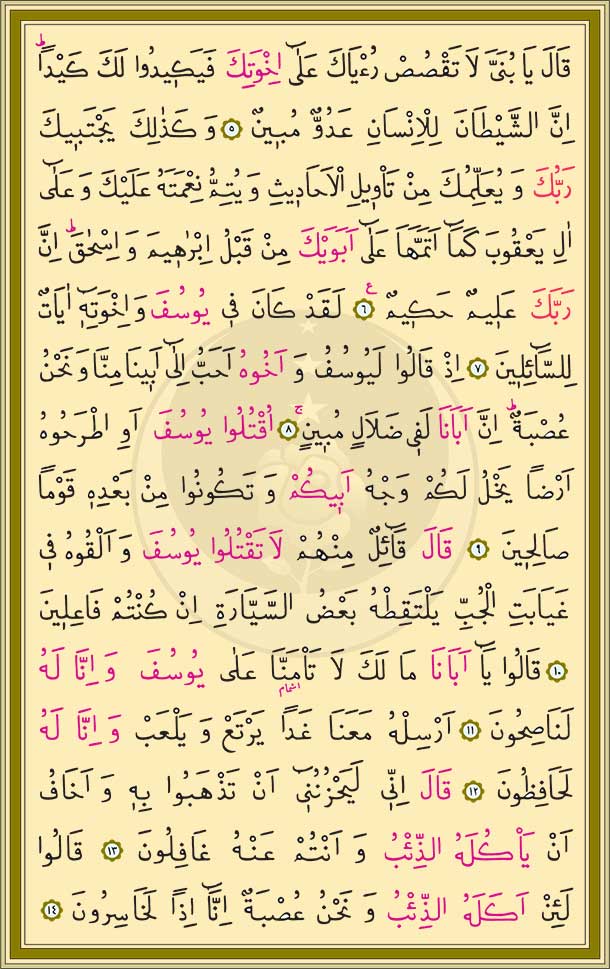 قَالَ يَا بُنَىَّ لَا تَقْصُصْ رُءْيَاكَ عَلٰٓى اِخْوَتِكَ فَيَكٖيدُوا لَكَ كَيْدًاؕ
اِنَّ الشَّيْطَانَ لِلْاِنْسَانِ عَدُوٌّ مُبٖينٌ ﴿٥﴾ وَ كَذٰلِكَ يَجْتَبٖيكَ
رَبُّكَ وَ يُعَلِّمُكَ مِنْ تَاْوٖيلِ الْاَحَادٖيثِ وَ يُتِمُّ نِعْمَتَهُ عَلَيْكَ وَ عَلٰٓى
اٰلِ يَعْقُوبَ كَمَٓا اَتَمَّهَا عَلٰٓى اَبَوَيْكَ مِنْ قَبْلُ اِبْرٰهٖيمَ وَ اِسْحٰقَؕ اِنَّ
رَبَّكَ عَلٖيمٌ حَكٖيمٌ ﴿٦﴾ ع لَقَدْ كَانَ فٖى يُوسُفَ وَ اِخْوَتِهٖٓ اٰيَاتٌ
لِلسَّٓائِلٖينَ ﴿٧﴾ اِذْ قَالُوا لَيُوسُفُ وَ اَخُوهُ اَحَبُّ اِلٰٓى اَبٖينَا مِنَّا وَ نَحْنُ
عُصْبَةٌؕ اِنَّ اَبَانَا لَفٖى ضَلَالٍ مُبٖينٍۚ ﴿٨﴾ اُقْتُلُوا يُوسُفَ اَوِ اطْرَحُوهُ
اَرْضًا يَخْلُ لَكُمْ وَجْهُ اَبٖيكُمْ وَ تَكُونُوا مِنْ بَعْدِهٖ قَوْمًا
صَالِحٖينَ ﴿٩﴾ قَالَ قَٓائِلٌ مِنْهُمْ لَا تَقْتُلُوا يُوسُفَ وَ اَلْقُوهُ فٖى
غَيَابَتِ الْجُبِّ يَلْتَقِطْهُ بَعْضُ السَّيَّارَةِ اِنْ كُنْتُمْ فَاعِلٖينَ
﴿١٠﴾ قَالُوا يَٓا اَبَانَا مَا لَكَ لَا تَاْمَنَّا عَلٰى يُوسُفَ وَ اِنَّا لَهُ
اشمام
لَنَاصِحُونَ ﴿١١﴾ اَرْسِلْهُ مَعَنَا غَدًا يَرْتَعْ وَ يَلْعَبْ وَ اِنَّا لَهُ
لَحَافِظُونَ ﴿١٢﴾ قَالَ اِنّٖى لَيَحْزُنُنٖٓى اَنْ تَذْهَبُوا بِهٖ وَ اَخَافُ
اَنْ يَاْكُلَهُ الذِّئْبُ وَ اَنْتُمْ عَنْهُ غَافِلُونَ ﴿١٣﴾ قَالُوا
لَئِنْ اَكَلَهُ الذِّئْبُ وَ نَحْنُ عُصْبَةٌ اِنَّٓا اِذًا لَخَاسِرُونَ ﴿١٤﴾